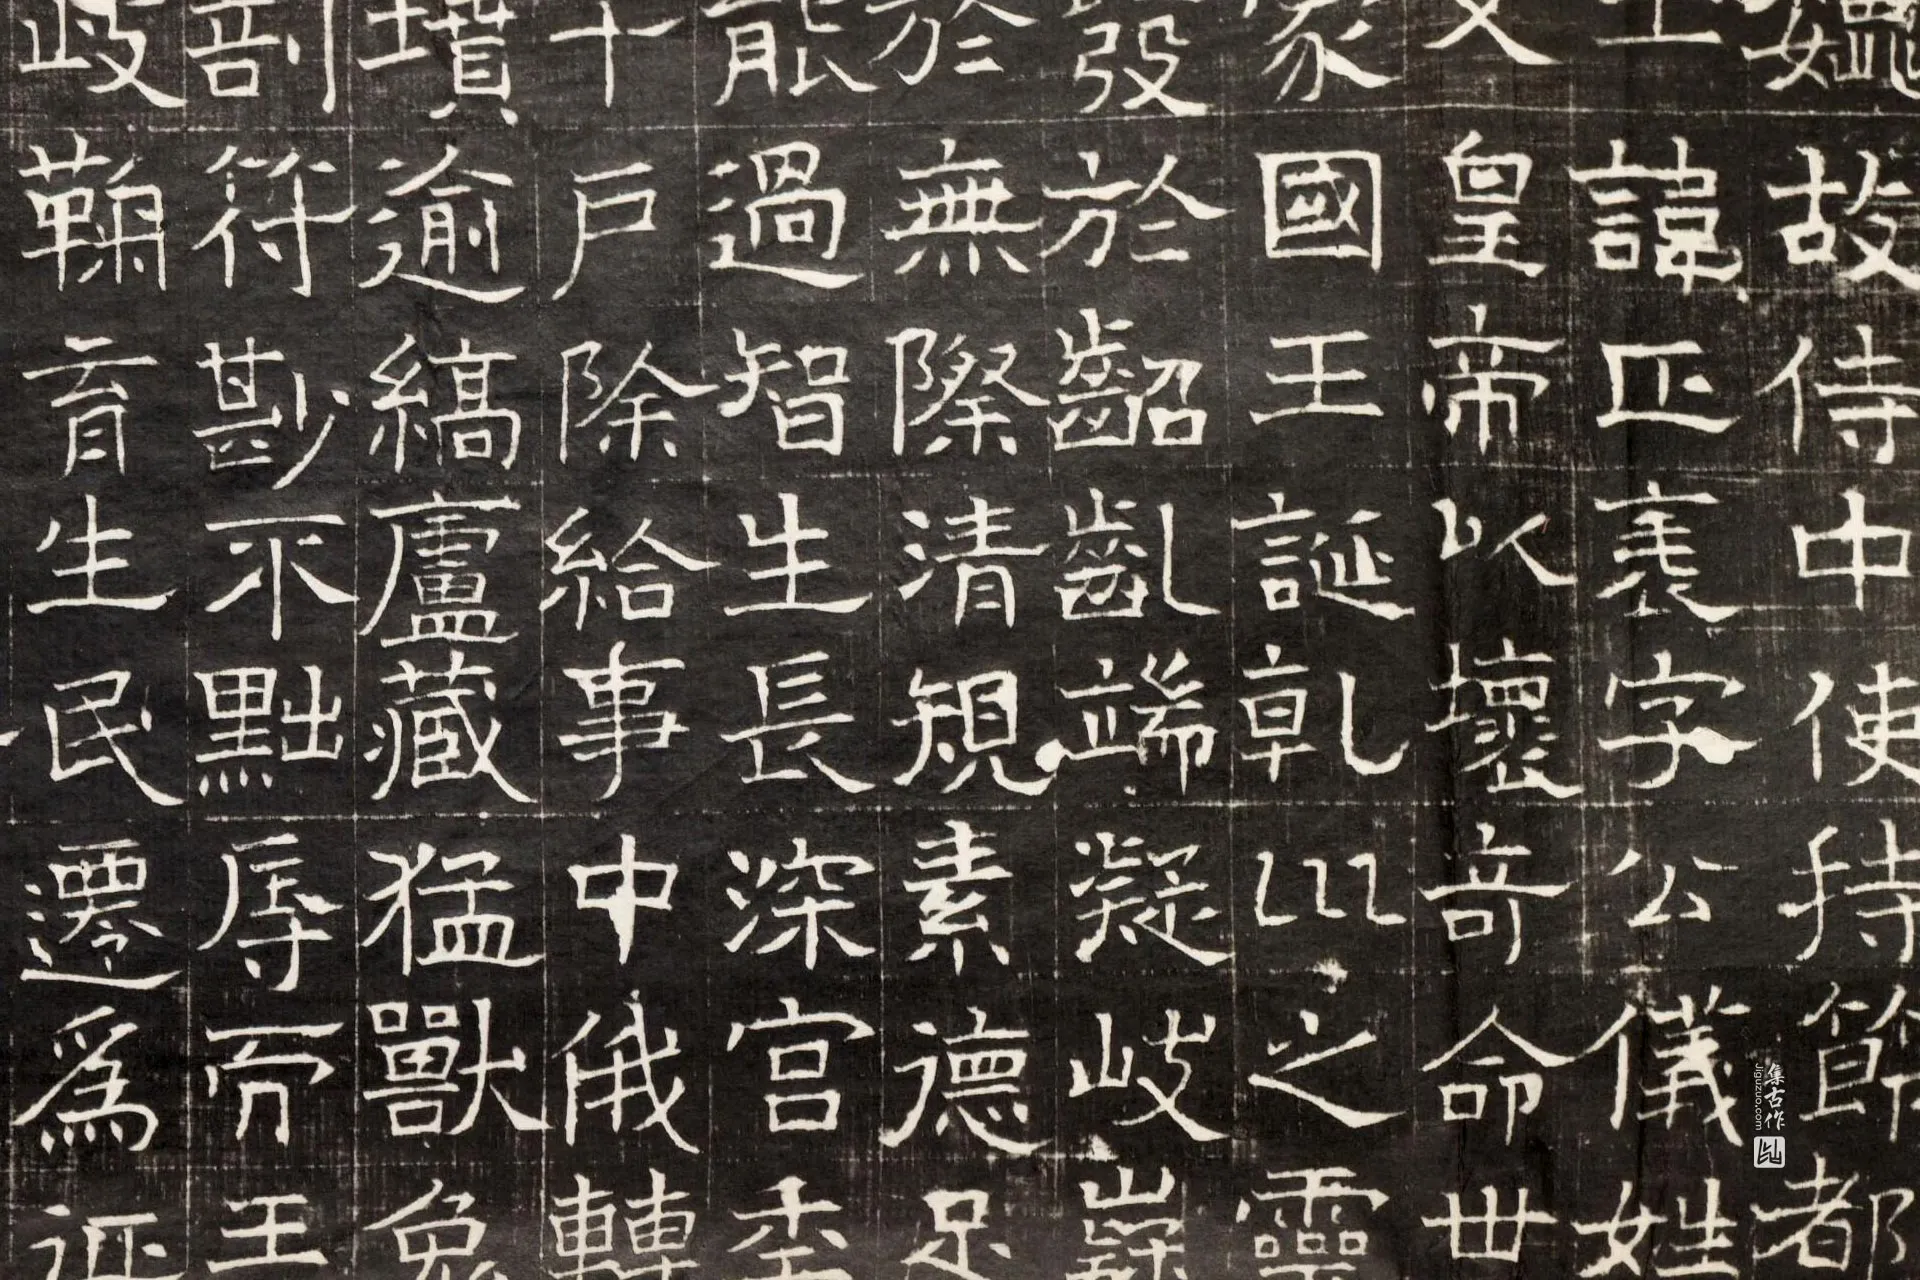 故侍中使持節都
諱字公儀姓
文皇帝以壞奇命世
家國王誕乾巛之靈
發於齠齓端凝岐嶷
於無際清規素德足
能過智生長深宮
十戶除給事中俄轉
逾縞廬藏猛獸兔
剖符尠不黜辱而王
岐鞠育生民遷爲征
集古作
Jiguzuo.com